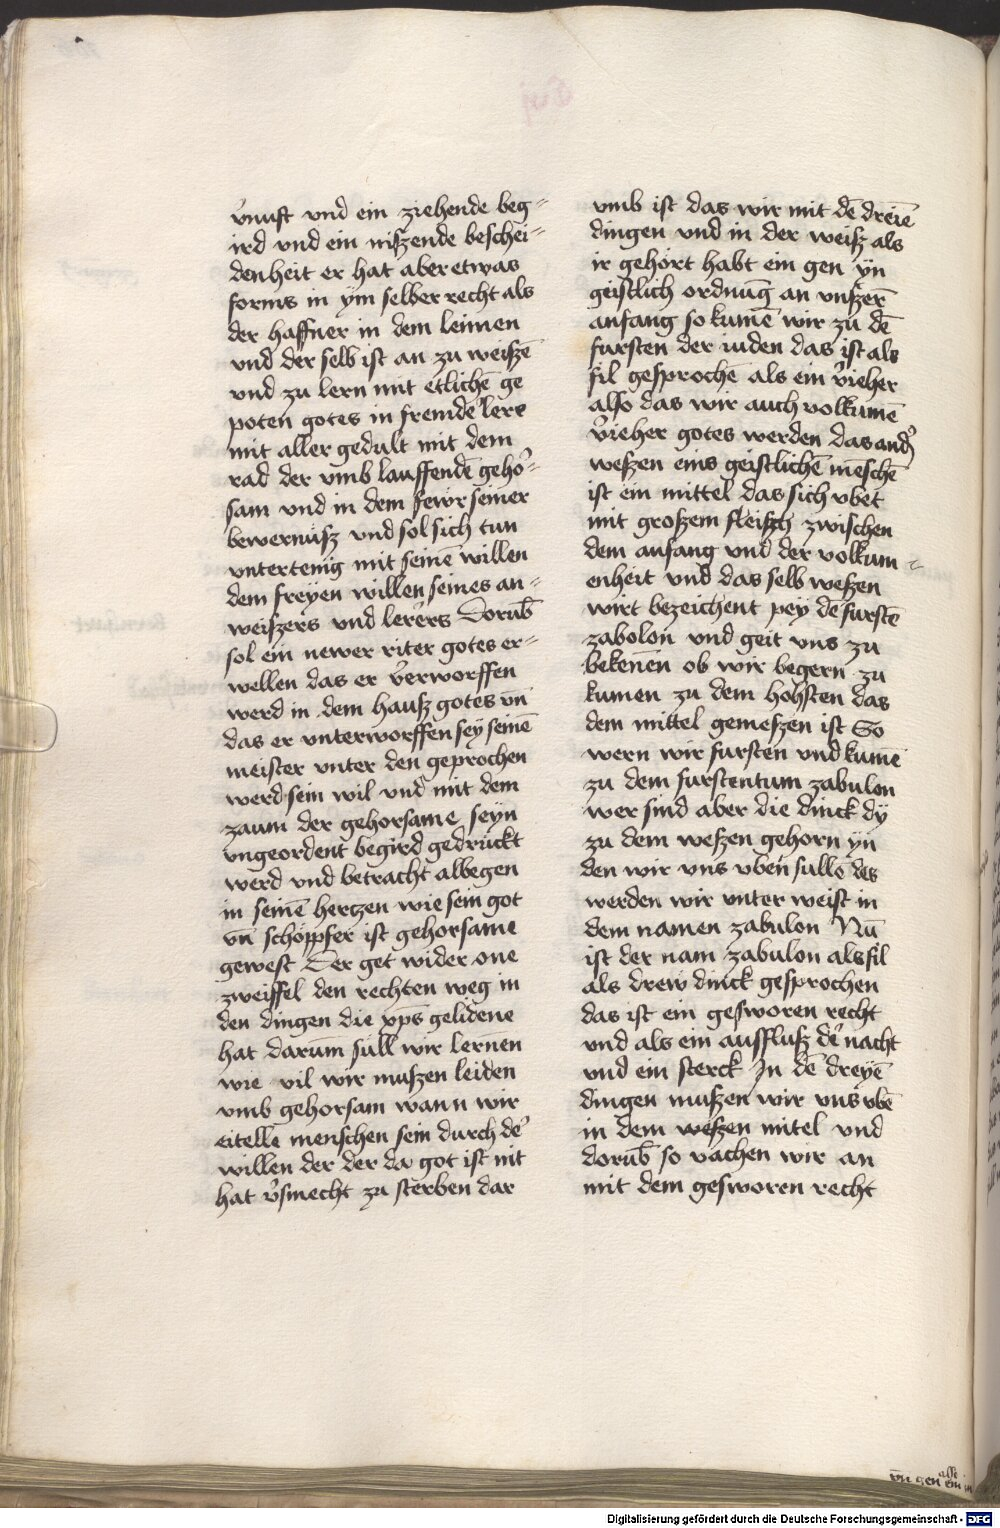 v̉nuft vnd ein ziehende beg⸗
ird vnd ein niſzende beſchei⸗
denheit er hat aber etwas
forms in ym ſelber recht als
der haffner in dem leimen
vnd der ſelb iſt an zu weiſzē
vnd zu lern mit etlichē ge
poten gotes in fremdē lere
mit aller gedult mit dem
rad der vmb lauffendē gehoꝛ̉⸗
ſam vnd in dem fewr ſeiner
bewernuſz vnd ſol ſich tun
vntertenig mit ſeinē willen
dem freyen willen ſeines an⸗
weiſzers vnd lerers Dorub̄
ſol ein newer riter gotes er⸗
wellen das er v̉erworffen
werd in dem hauſz gotes vn̄
das er vnterworffen ſey ſeinē
meiſter vnter den geprochen
werd ſein wil vnd mit dem
zaum der gehorſame ſeyn
vngeordent begird gedruckt
werd vnd betracht albegen
in ſeinē hertzen wie ſein got
vn̄ ſchöpfer iſt gehorſame
geweſt Der get wider one
zweiffel den rechten weg in
den dingen die xp̄s gelidene
hat darum̄ ſull wir lernen
wie vil wir muſzen leiden
vmb gehorſam wann wir
eitelle menſchen ſein durch de̓
willen der der da got iſt nit
hat v̉ſmecht zu ſterben dar
vmb iſt das wir mit dē dreiē
dingen vnd in der weiſz als
ir gehört habt ein gen yn
geiſtlich ordnūg an vnſzer̄
anfang ſo kumē wir zu dē
furſten der iuden das iſt als
fil geſprochē als ein v̉ieher
alſo das wir auch volkumē
v̉ieher gotes werden das and̉
weſzen eins geiſtlichē mēſchē
iſt ein mittel das ſich vbet
mit groſzem fleiſzh zwiſchen
dem anfang vnd der volkum⸗
enheit vnd das ſelb weſzen
wirt bezeichent pey dē furſtē
zabolon vnd geit vns zu
bekenen ob wir begern zu
kumen zu dem hohſten das
dem mittel gemeſzen iſt So
wern wir furſten vnd kumē
zu dem furſtentum zabulon
wer ſind aber die dinck dy
zu dem weſzen gehorn yn
den wir vns vben ſulle des
werden wir vnter weiſt in
dem namen zabulon Nū
iſt der nam zabulon als fil
als drew dinck geſprochen
das iſt ein geſworen recht
vnd als ein auſfluſz de̓ nacht
vnd ein ſterck In dē dreyē
dingen muſzen wir vns vbē
in dem weſzen mitel vnd
dorub̄ ſo vachen wir an
mit dem geſworen recht
Digitalisierung gefördert durch die Deutsche Forschungsgemeinschaft - DFG